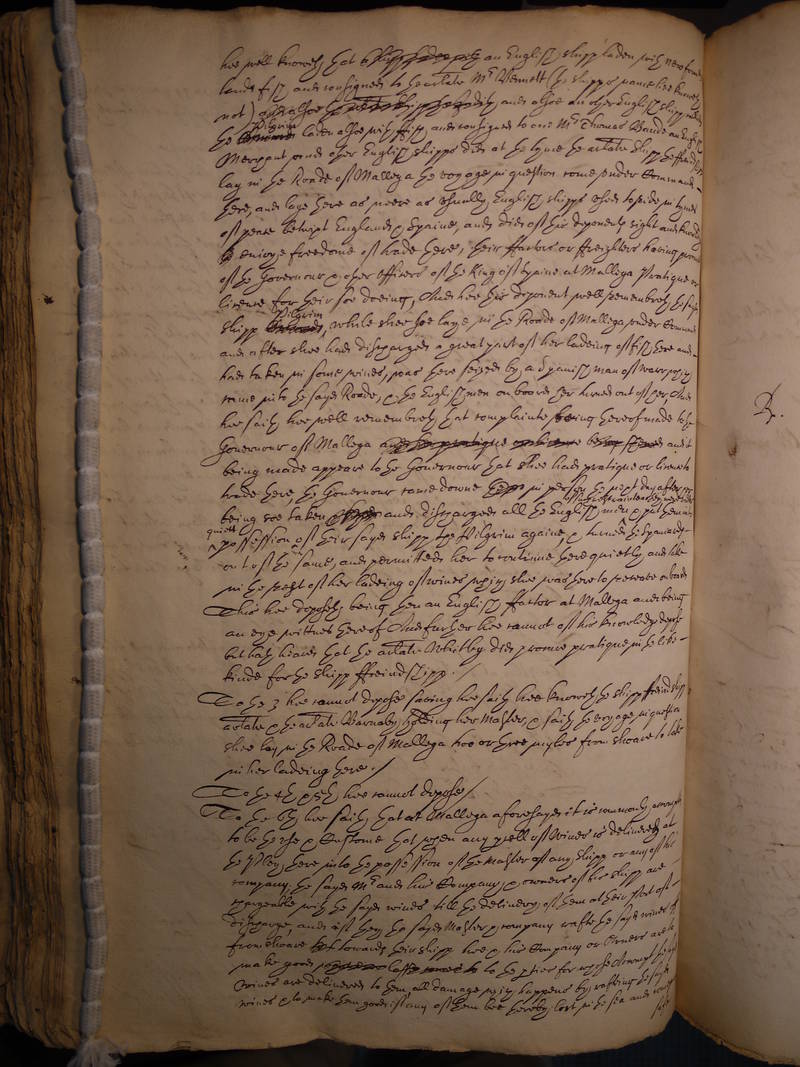 hee well knoweth that an English shipp laden with newfound
lands fish and consigned to the arlate Mr Bennett (the shipps name hee knoweth
not) and alsoe an other English shipp called
the Pilgrim laden alsoe with ffish, and consigned to one Mr Thomas an English
Merchant and other English shipps did at the tyme the arlate shipp the ffriendshipp
lay in the Roade of Mallega the voyage in question come under Command
there, and laye there as neere as usually English shipps used to ride in tymes
of peace betwixt England & Spaine, and did of this deponents sight and knowledge
enioye freedome of trade there, their ffactors or freighters having
of the Governour & other officers of the King of Spaine at Mallega Pratique or
license for their soe doeing, And hee this deponent well remembreth the sayd
shipp Pilgrim, while shee soe laye in the Roade of Mallega under Command
and after shee had discharged a great part of her ladeing of fish there and
had taken in some wines, was there seized by a Spanish man of warr
came into the sayd Roade, & the Englishmen on board her turned out of her, And
hee saith hee well remembreth that complainte being thereof made to the
Governour of Mallega and it
being made appeare to the Governour that shee had pratique or license to
trade there, the Governour came downe in person the next day after
being soe taken and discharged all the English men & put them in
quiett
possession of their sayd shipp the Pilgrim againe, & turned the Spaniards
out of the same, and permitted her to continue there quietly and
in the rest of her ladeing of wines which shee was there to receive onboard
This hee deposeth being then an English ffactor at Mallega and being
an eye wittnes thereof And further hee cannot of his knowledge depose
but hath heard that the arlate Whitby did procure pratique in the like
kinde for the shipp ffreindshipp./
To the 3 hee cannot depose saving hee saith hee knoweth the shipp ffreindshipp
arlate & the arlate Barnaby her Master, & saith the voyage in question
shee lay in the Roade of Mallega two or three myles from shoare to take
in her ladeing there./
To the 4th & 5th, hee cannot depose/
To the 6th hee saith, that at Mallega aforesayd it is commonly
to be the use & Custome that when any of Wines is delivered at
the there into the possession of the Master of any shipp or any of his
company, the sayd Mr and his Company, & owners of his shipp are
chargeable with the sayd wines till the delivery of them at their Port of
discharge, and if the sayd Master & company rafte the sayd wines
from shoare towards their shipp hee & his Company or Owners are to
make good to the for whose Accompt the
Wines are delivered to them, all damage which happens by rafting the sayd
wines & to make them good if any of them bee thereby lost in the sea and